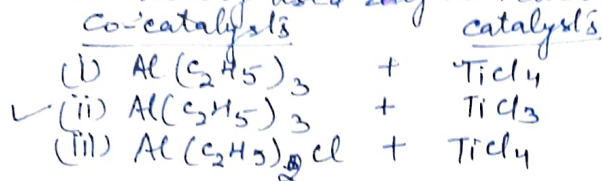 Co-catalysts catalysts
(i) Al(C2H5)3 + TiCl4
✓(ii) Al(C2H5)3 + TiCl3
(iii) Al(C2H5)2Cl + TiCl4